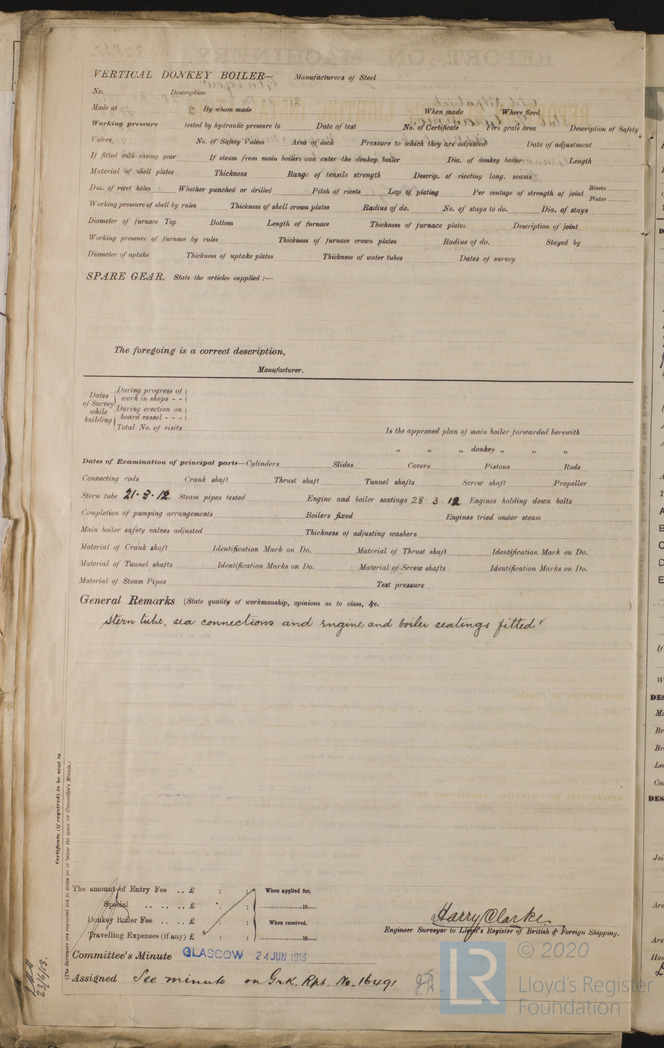 VERTICAL DONKEY BOILER— Manufacturers of Steel
No. Description
Made at By whom made When made Where fixed
Working pressure tested by hydraulic pressure to Date of test No. of Certificate Fire grate area Description of Safety
Valves No. of Safety Valves Area of each Pressure to which they are adjusted Date of adjustment
If fitted with easing gear If steam from main boilers can enter the donkey boiler Dia. of donkey boiler Length
Material of shell plates Thickness Range of tensile strength Descrip. of riveting long. seams
Dia. of rivet holes Whether punched or drilled Pitch of rivets Lap of plating Per centage of strength of joint Rivets
Plates
Working pressure of shell by rules Thickness of shell crown plates Radius of do. No. of stays to do. Dia. of stays
Diameter of furnace Top Bottom Length of furnace Thickness of furnace plates Description of joint
Working pressure of furnace by rules Thickness of furnace crown plates Radius of do. Stayed by
Diameter of uptake Thickness of uptake plates Thickness of water tubes Dates of survey
SPARE GEAR. State the articles supplied :—
The foregoing is a correct description,
Manufacturer.
Dates of Survey while building
During progress of work in shops - -
During erection on board vessel - - -
Total No. of visits
Is the approved plan of main boiler forwarded herewith
" " " donkey " " "
Dates of Examination of principal parts—Cylinders Slides Covers Pistons Rods
Connecting rods Crank shaft Thrust shaft Tunnel shafts Screw shaft Propeller
Stern tube 21·3·12 Steam pipes tested Engine and boiler seatings 28·3·12 Engines holding down bolts
Completion of pumping arrangements Boilers fixed Engines tried under steam
Main boiler safety valves adjusted Thickness of adjusting washers
Material of Crank shaft Identification Mark on Do. Material of Thrust shaft Identification Mark on Do.
Material of Tunnel shafts Identification Marks on Do. Material of Screw shafts Identification Marks on Do.
Material of Steam Pipes Test pressure
General Remarks (State quality of workmanship, opinions as to class, &c. )
Stern tube, sea connections and engine and boiler seatings fitted
Certificate (if required) to be sent to
The amount of Entry Fee .. £ : : When applied for,
Special .. .. .. £ : : 19
Donkey Boiler Fee .. .. £ : : When received,
Travelling Expenses (if any) £ : : 19
Harry Clarke
Engineer Surveyor to Lloyd's Register of British & Foreign Shipping.
Committee's Minute GLASGOW 24 JUN 1913
Assigned See minute on Grk. Rpt. No. 16491
© 2020
LR Lloyd's Register
Foundation